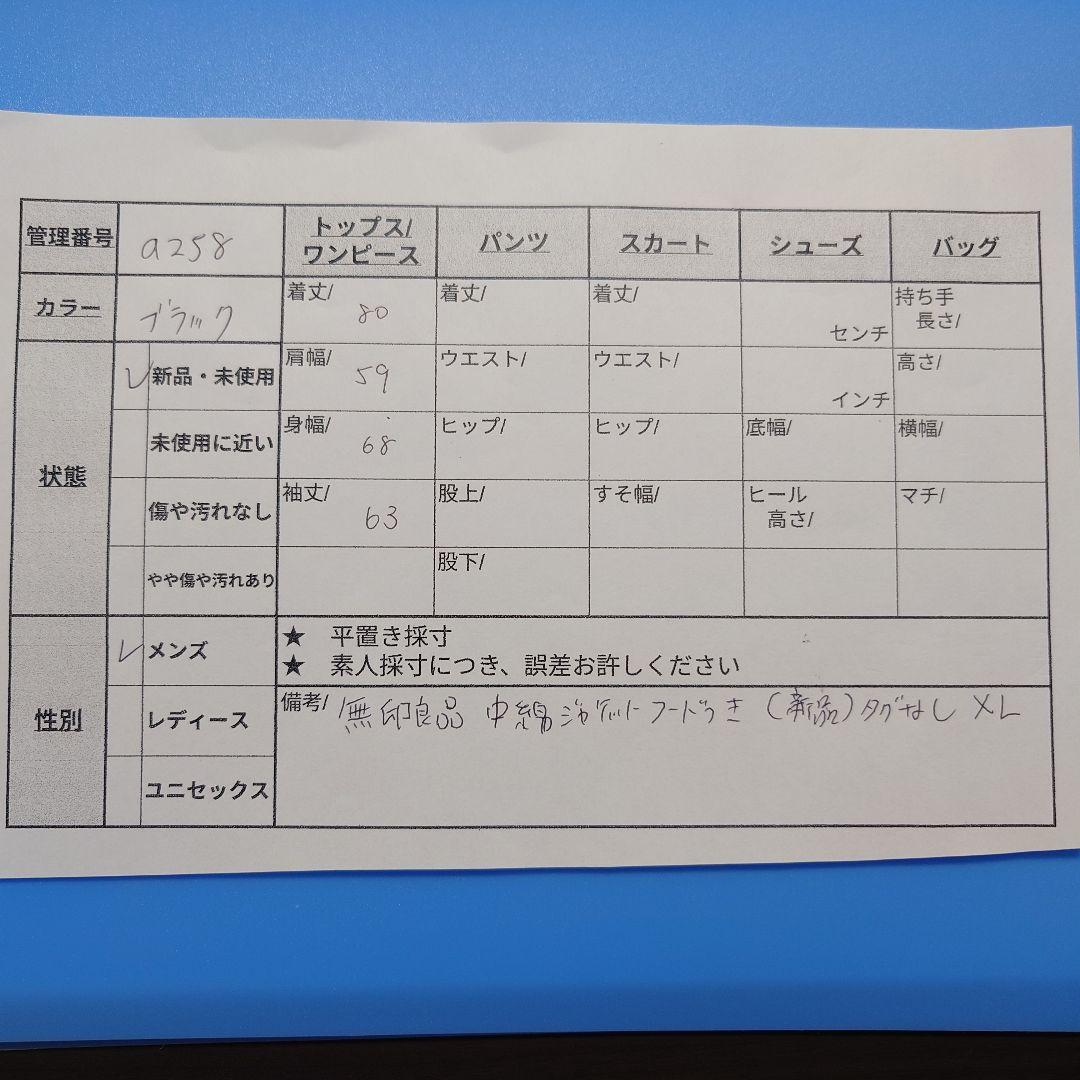 管理番号 a258 トップス/ワンピース パンツ スカート シューズ バッグ
カラー ブラック 着丈/ 80 着丈/ 着丈/ センチ 持ち手長さ/
状態 レ 新品・未使用 肩幅/ 59 ウエスト/ ウエスト/ インチ 高さ/
未使用に近い 身幅/ 68 ヒップ/ ヒップ/ 底幅/ 横幅/
傷や汚れなし 袖丈/ 63 股上/ すそ幅/ ヒール高さ/ マチ/
やや傷や汚れあり 股下/
性別 レ メンズ ★ 平置き採寸
★ 素人採寸につき、誤差お許しください
レディース 備考/ 無印良品 中綿ジャケット フードつき (新品)タグなし XL
ユニセックス